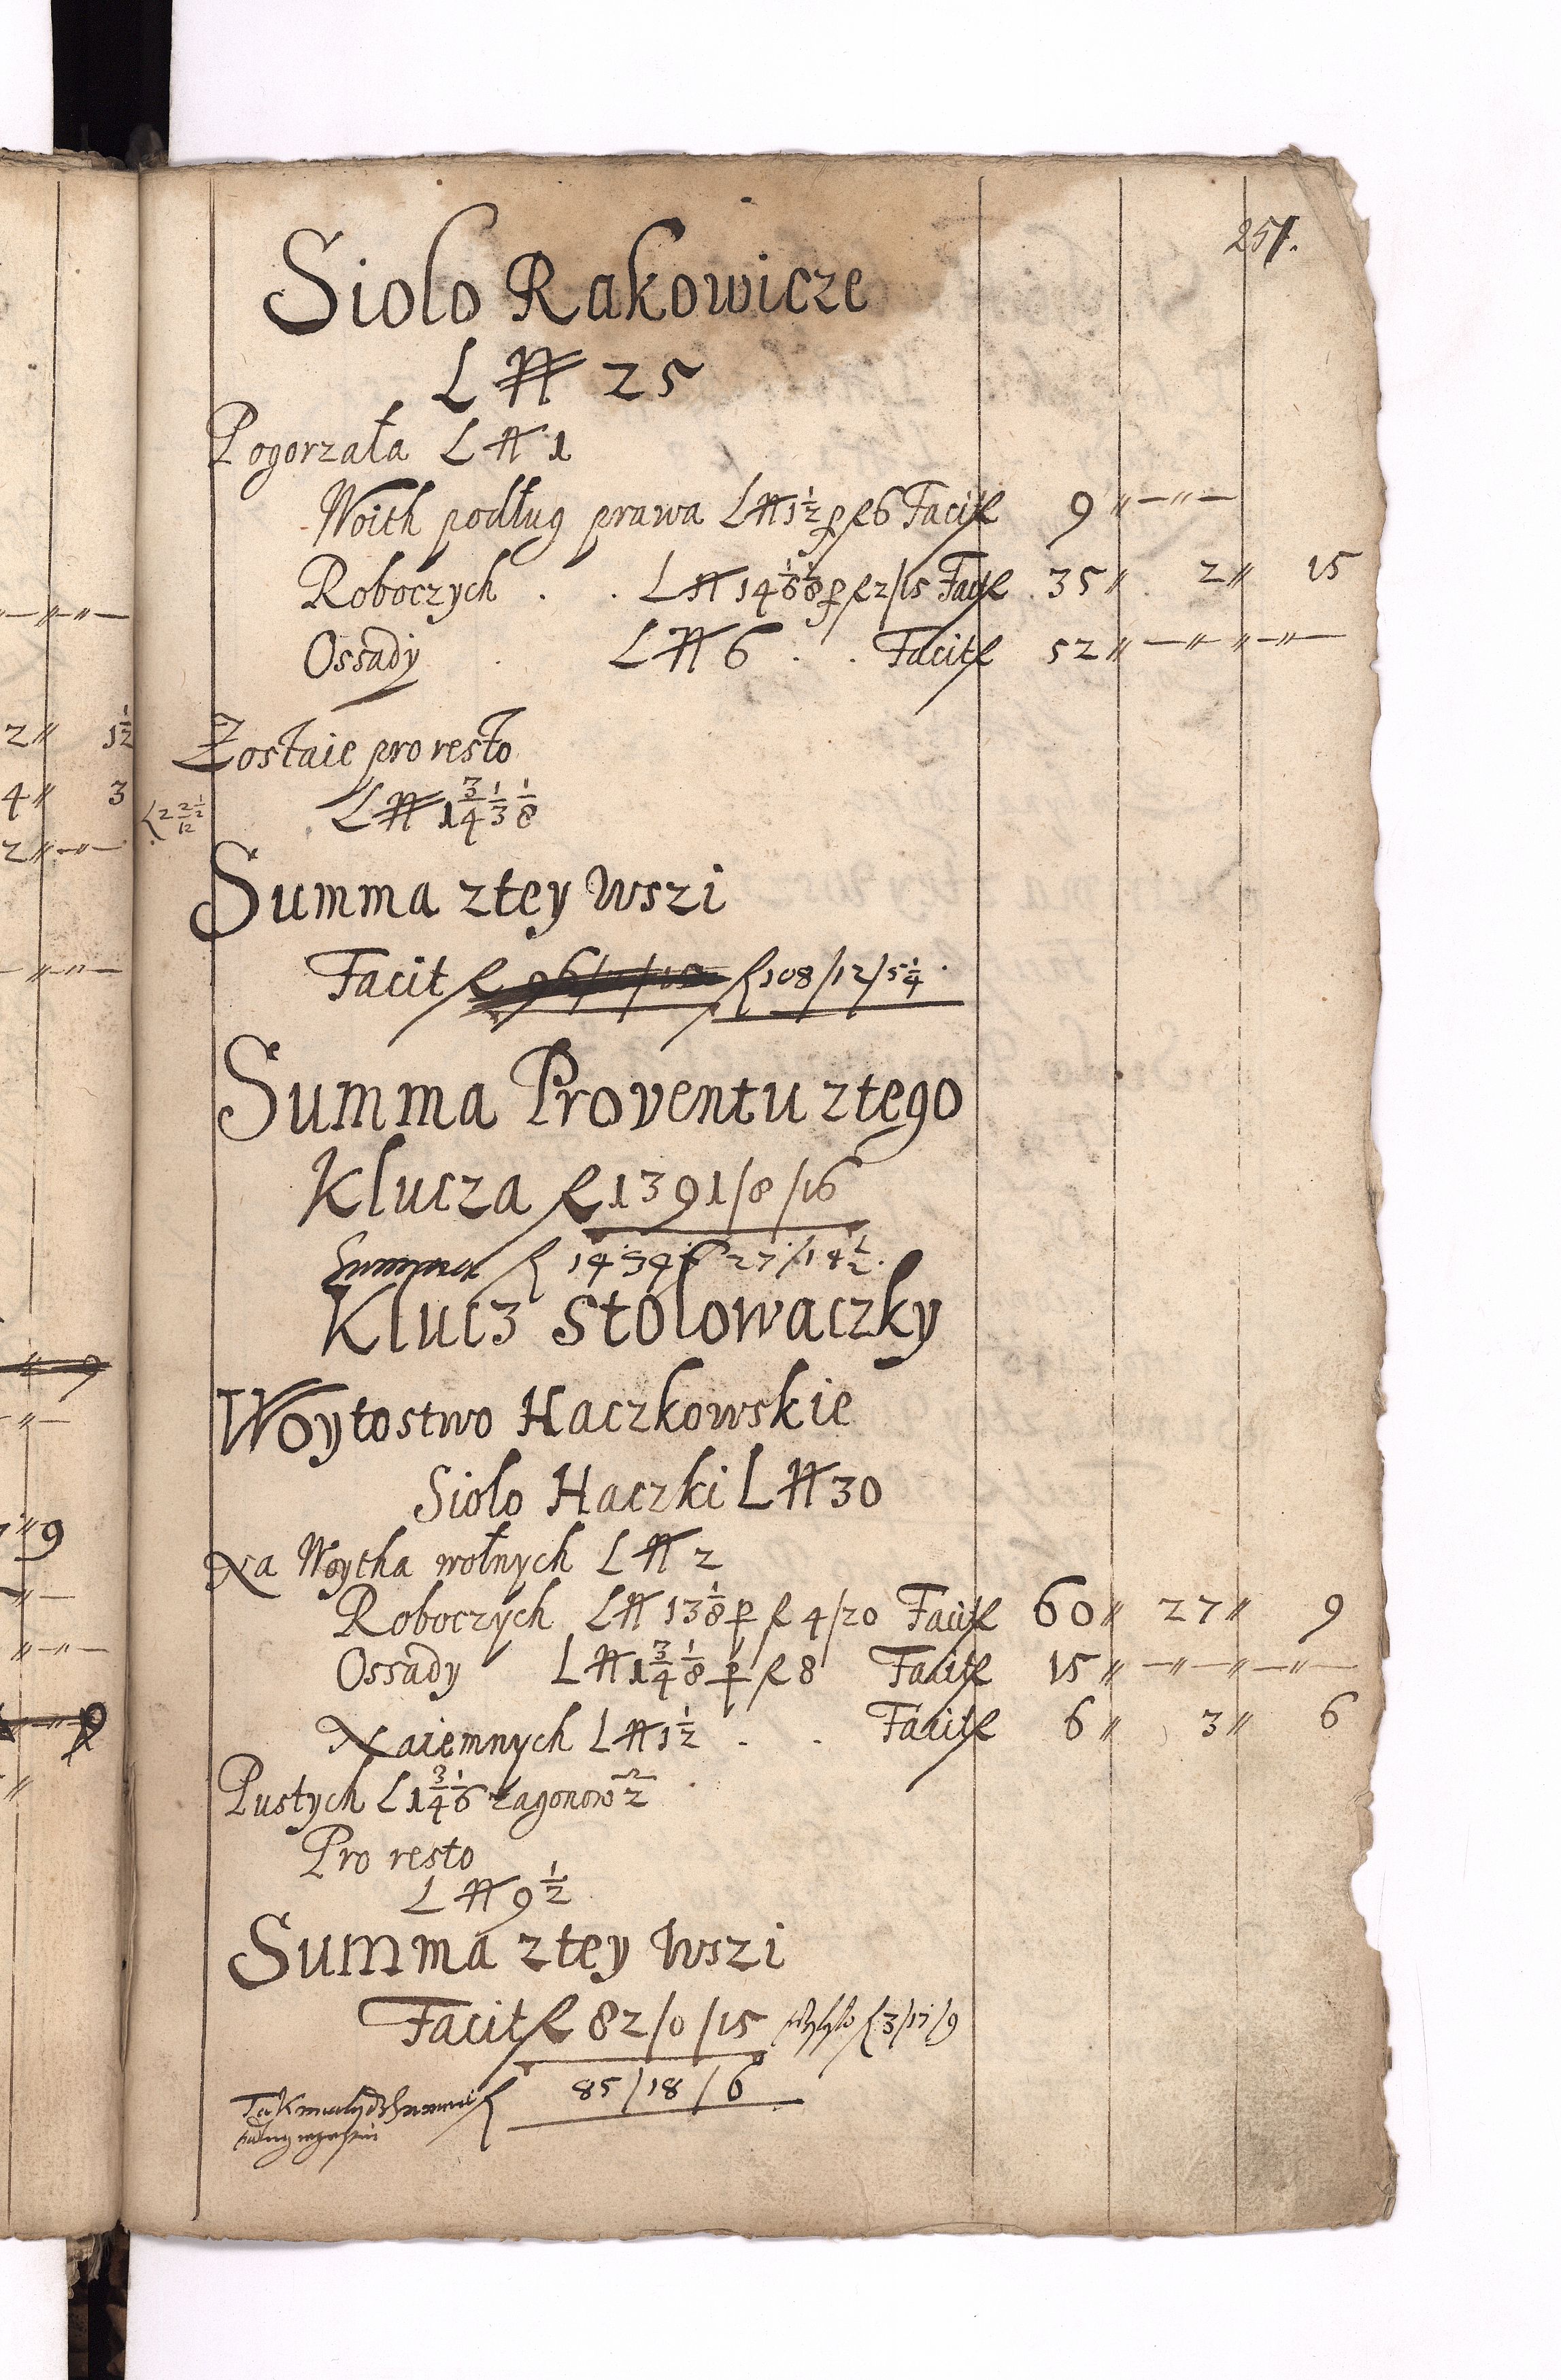 251.
Siolo Rakowicze
L 25
Pogorzała L 1
Woith podług prawa L 1 1/2 p f 6 Facit f 9 〃 — 〃 —
Roboczych . . L 14 1/8 1/8 p f 2/15 Facit f 35 〃 2 〃 15
Ossady . L 6 . . Facit f 52 〃 — 〃 〃 — 〃 —
Zostaie pro resto
L 1 3/4 1/3 1/8
Summa z tey Wszi
Facit f f 108/12/5 1/4
Summa Proventu z tego
Klucza f 1391/8/16
Summa f 1454 / 27/14 1/2
Klucz Stolowaczky
Woytostwo Haczkowskie
Siolo Haczki L 30
Na Woytha wołnych L 2
Roboczych L 13 1/8 p f 4/20 Facit f 60 〃 27 〃 9
Ossady L 1 3/4 1/8 p f 8 Facit f 15 〃 — 〃 — 〃 — 〃 —
Naiemnych L 1 1/2 . . Facit f 6 〃 3 〃 6
Pustych L 1 3/4 1/6 zagonow 2
Pro resto
L 9 1/2
Summa z tey Wszi
Facit f 82/0/15 f 3/17/9
85/18/6